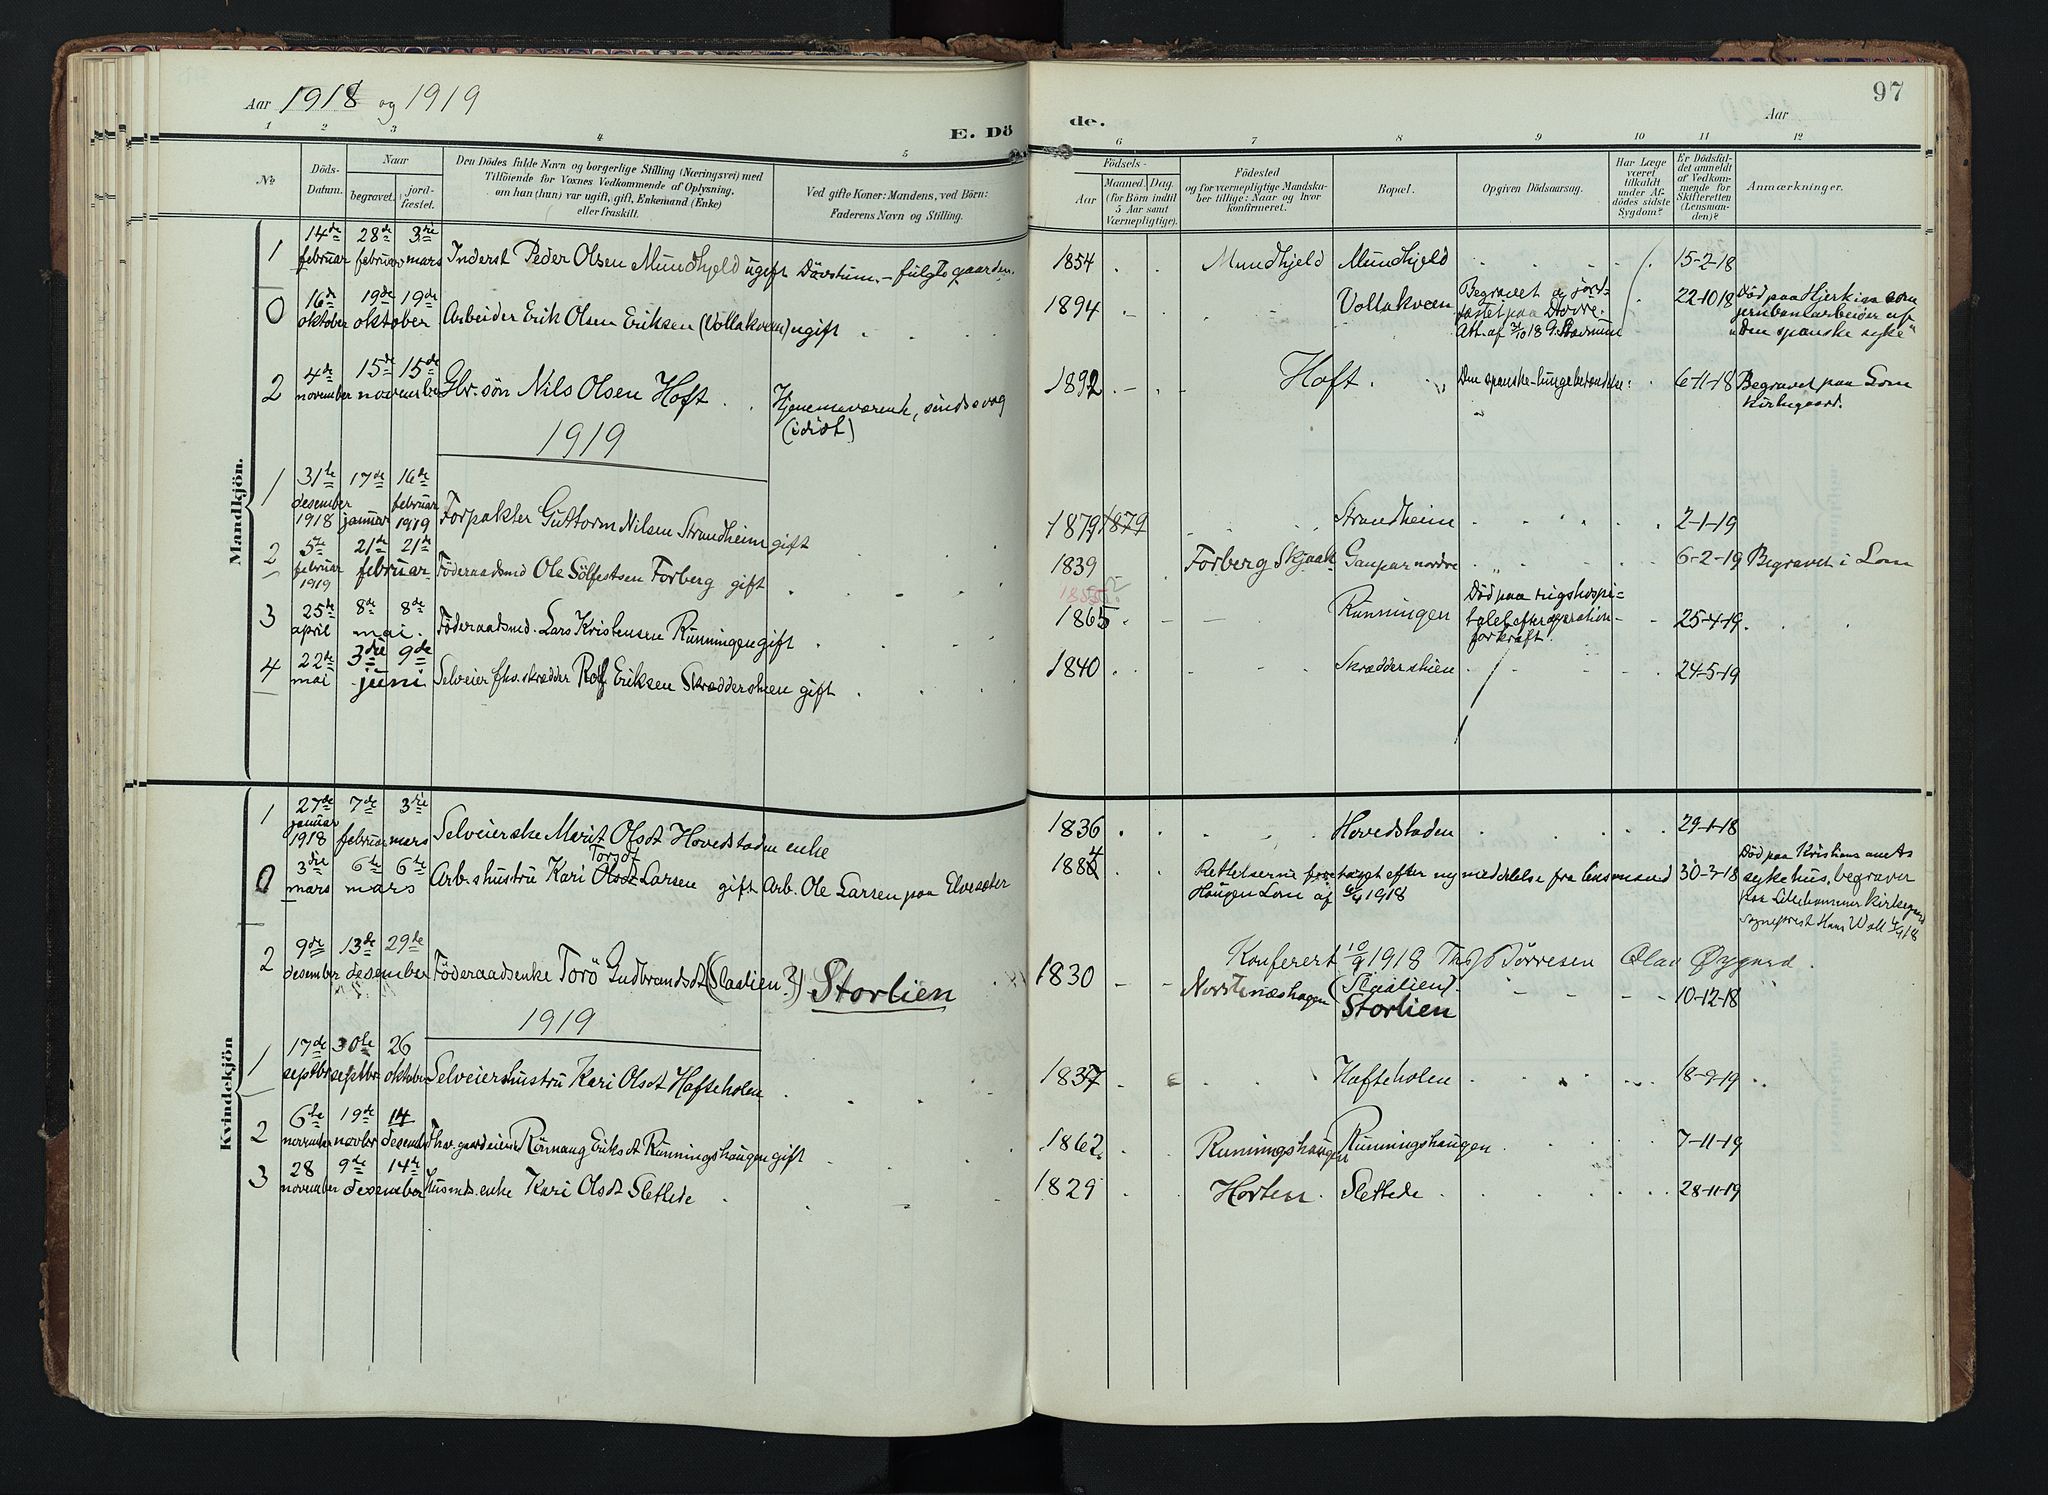 Aar 1918 og 1919
E. Dö
de.
97
Aar
1 2 3 4 5 6 7 8 9 10 11 12
№
Döds-Datum.
Naar
begravet.
jord-fæstet.
Den Dödes fulde Navn og borgerlige Stilling (Næringsvei) med
Tilföiende for Voxnes Vedkommende af Oplysning,
om han (hun) var ugift, gift, Enkemand (Enke)
eller fraskilt.
Ved gifte Koner: Mandens, ved Börn:
Faderens Navn og Stilling.
Födsels-
Aar
Maaned. Dag.
(for Börn indtil
5 Aar samt
Værnepligtige).
Födested
og for værnepligtige Mandska-
ber tillige: Naar og hvor
konfirmeret.
Bopæl.
Opgiven Dödsaarsag.
Har Læge
været
tilkaldt
under Af-
dödes sidste
Sygdom?
Er Dödsfal-
det anmeldt
af Vedkom-
mende for
Skifteretten
(Lensman-
den)?
Anmærkninger.
Mandkjön.
1 14de februar 28de februar 3die mars Inderst Peder Olsen Mundhjeld ugift Dövstum. - fulgte gaarden. 1854 Mundhjeld Mundhjeld 15-2-18
0 16de oktober 19de 19de oktober Arbeider Erik Olsen Eriksen (Vollakveen) ugift 1894 Vollakveen Begravet og jord-
fæstet paa Dovre.
Att. af 31/10 18 22-10 18 Död paa Hjerkinn som
jernbanearbeider af
"Den spanske syke"
2 4de november 15de 15de november Gbr. sön Nils Olsen Hoft Hjemmeværende, sindssvag
(idiot) 1892 Hoft " Den spanske-lungebetændelse 6-11-18 Begravet paa Lom
Kirkegaard.
1919
1 31te desember 1918 17de januar 16de februar 1919 Forpakter Guttorm Nilsen Strandheim gift 1879 1879 Strandheim 2-1-19
2 5te februar 1919 21de 21de februar Föderaadsmd Ole Sölfestsen Forberg gift 1839 Forberg Skjaak Gaupar nordre 6-2-19 Begravet i Lom
3 25de april 8de 8de mai. Föderaadsmd. Lars Kristensen Runningen gift 1855 1865 Runningen Död paa rigshospi-
talet efter operation-
for kræft. 25-4-19
4 22de mai 3die 9de juni Selveier fhv. skrædder Rolf Eriksen Skræddershien gift 1840 Skræddershien 24-5-19
Kvindekjön
1 27de januar 1918 7de februar 3die mars Selveierske Marit Olsdt Hovedstaden enke 1836 Hovedstaden 29-1-18
0 3die mars 6te 6te mars Arb.shustru Kari Olsdt Torsdt Larsen gift Arb. Ole Larsen paa Elvesæter 1884 Rettelserne foretagt efter ny meddelelse fra lensmand
Haugen Lom af 6/4 1918 30-3-18 Död paa Kristians amts
sykehus, begravet
paa Lillehammer Kirkegaard
Sogneprest Hans Woll 4/4 18
Konferert 10/9 1918 Th. Törresen Olav Øygard.
2 9de desember 13de 29de desember Föderaadsenke Torö Gudbrandsdt (Slaalien?) Storlien 1830 Nordtnæshagen (Slaalien)
Storlien 10-12-18
1919
1 17de septbr 30te septbr 26 oktober Selveiershustru Kari Olsdt Hafteholen 1837 Hafteholen 18-9-19
2 6te november 19de novbr 14 desemb Fhv. gaardeierske Rönnaug Eriksdt Runningshaugen gift 1862 Runningshaugen Runningshaugen 7-11-19
3 28 november 9de 14de desember Husmds.enke Kari Olsdt Slettede 1829 Horten. Slettede 28-11-19